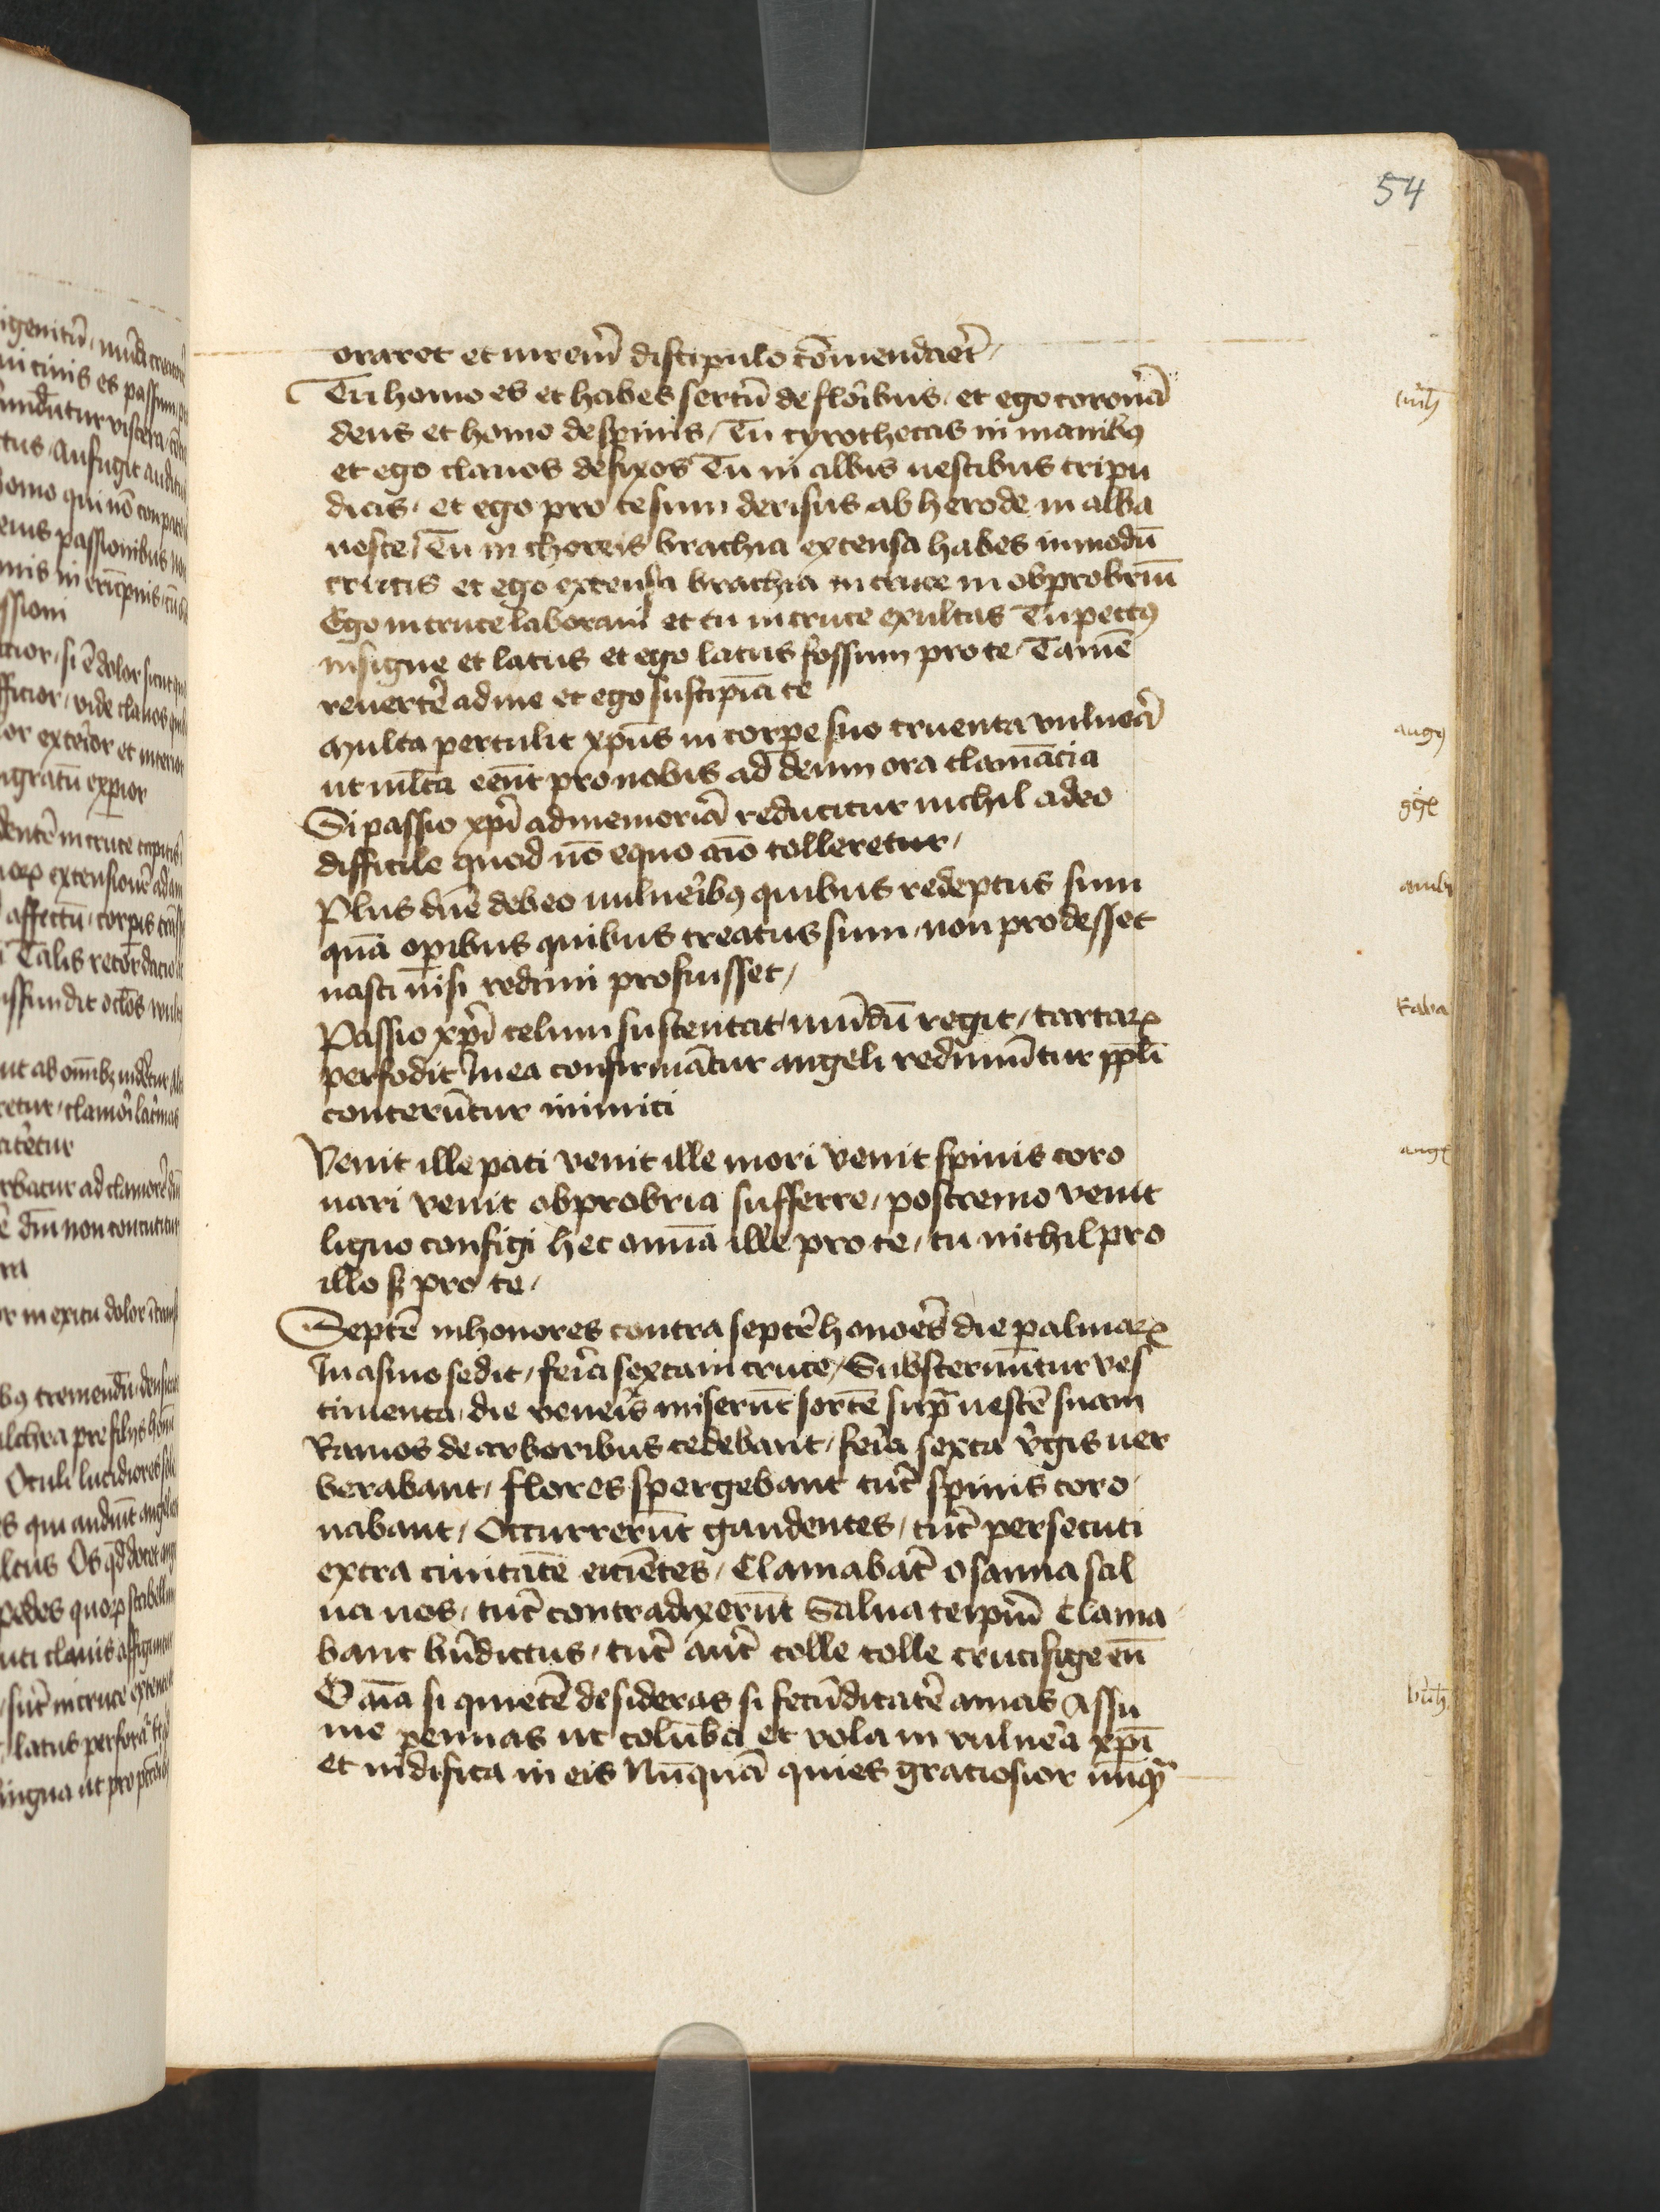 54
oraret et mrem̄ discipulo cōmendaret̄
Tu homo es et habes sertū de florībus et ego coronā
deus et homo de spinis Tu cyrothecas in manibꝰ
et ego clauos defixos Tu in albis uestibus tripu
dias et ego pro te sum derisus ab herode in alba
ueste Tu in choreis brachia extensa habes in modū
crucis et ego extensa brachia in cruce in obprobriū
Ego in cruce laboraui et tu in cruce exultas Tu pectꝰ
insigne et latus et ego latus fossum pro te Tamē
reuertē ad me et ego suscipiā te
Multa pertulit xp̄us in corpe suo cruenta uulnera
ut multa eēnt pro nobis ad deum ora clamācia
Si passio xp̄i ad memoriā reducitur nichil adeo
difficile quod nō equo aīo tolleretur
Plus dn̄e debeo uulneribꝰ quibus redeptus sum
quā opibus quibus creatus sum non prodesset
nasci nisi redimi profuisset
Passio xp̄i celum sustentat mūdū regit tartaꝝ
perfodit In ea confirmātur angeli redimūtur ppl̄i
conterūtur inimici
Venit ille pati venit ille mori venit spinis coro
nari venit obprobria sufferre postremo venit
ligno configi hec omnīa ille pro te tu nichil pro
illo sꝫ pro te
Septē inhonores contra septē honoēs die palmaꝝ
In asino sedit feria sexta in cruce Substernūtur ves
timenta die veneris miserūt sortē sup̄ uestē suam
Ramos de arboribus cedebant feria sexta v̄gis uer
berabant flores spergebant tūc spinis coro
nabant Occurrerūt gaudentes tūc persecuti
extra ciuitatē eiciētes Clamabāt osanna sal
ua nos tūc contradixerūt Salua teipm̄ Clama
bant bn̄dictus tūc aūt tolle tolle crucifige eū
O aīa si quietē desideras si fecūditatē amas Assu
me pennas ut colūba et vola in vulnera xp̄i
et nidifica in eis Nūquā quies graciosior nūqȝ
augꝰ
ambr
Raba